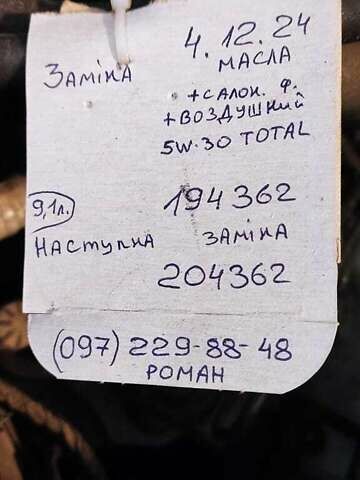 4.12.24
Заміна масла
+салон. ф.
+воздушний
5W-30 TOTAL
9,1л. 194362
Наступна заміна
204362
(097) 229-88-48
Роман